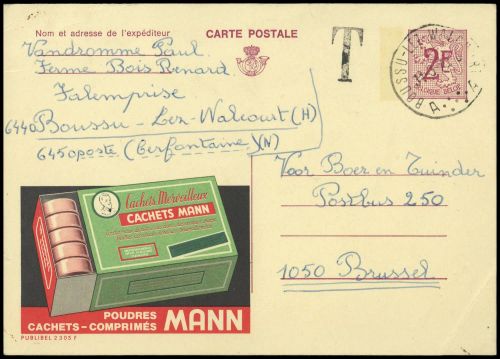 Nom et adresse de l'expéditeur
CARTE POSTALE
Vandromme Paul
Ferme Bois Renard
Falemprise
6440 Boussu-Lez-Walcourt (H)
6450 poste (Cerfontaine)(N)
T
2F
BELGIQUE BELGIE
BOUSSU-LEZ-WALCOURT
A
Voor Boer en Tuinder
Postbus 250
1050 Brussel
Cachets Merveilleux
CACHETS MANN
POUDRES
CACHETS-COMPRIMÉS MANN
PUBLIBEL 2305 F